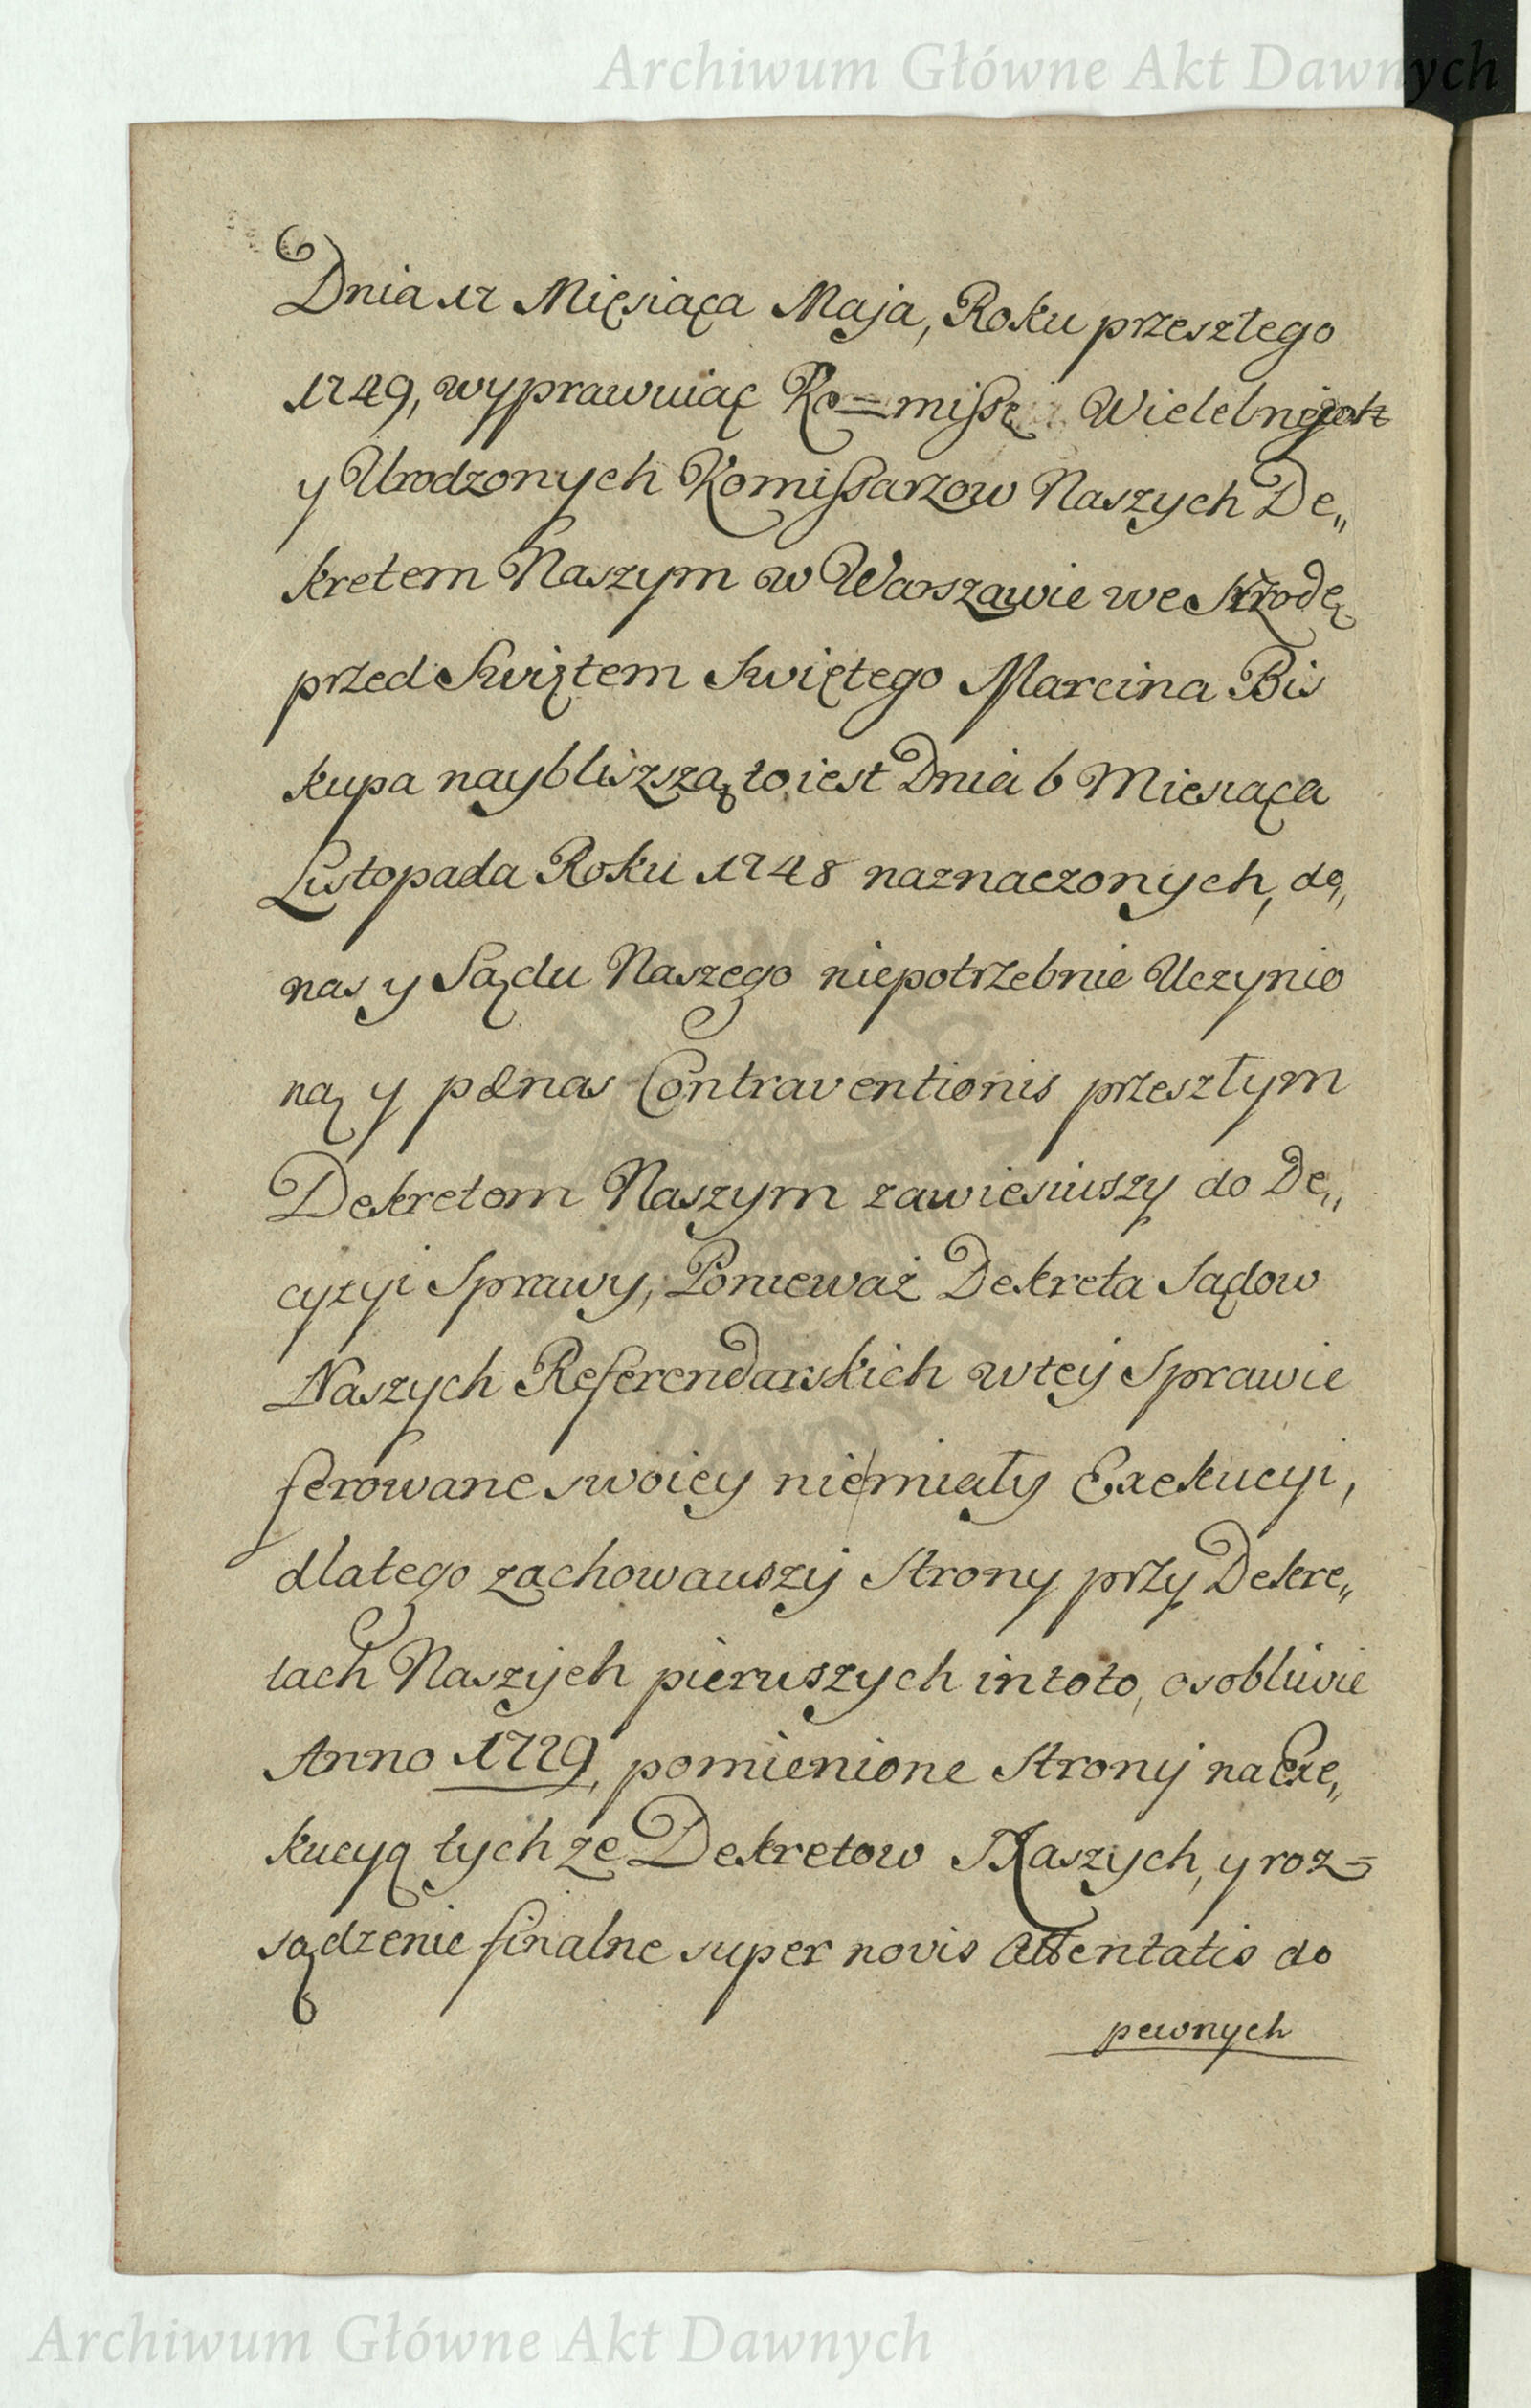 Archiwum Główne Akt Dawnych
Dnia 17 Mięsiąca Maja, Roku przeszłego
1749, wyprawuiąc Ko=missę Wielebnych
y Urodzonych Komissarzow Naszych De„
kretem Naszym w Warszawie we Srzodę
przed Swiętem Swiętego Marcina Bis
kupa naybliszszą to iest Dnia 6 Miesiąca
Listopada Roku 1748 naznaczonych, do„
nas y Sądu Naszego niepotrzebnie Uczynio
ną y pænas Contraventionis przeszłym
Dekretom Naszym zawiesiuszy do De„
cyzyi Sprawy, Ponieważ Dekreta Sądow
Naszych Referendarskich w tey Sprawie
ferowane swoiey nie miały Exekucyi,
dlatego zachowauszy Strony przy Dekre„
tach Naszych pieruszych in toto, osobliwie
Anno 1729, pomienione Strony na Exe„
kucyą tychże Dekretow Naszych, y roz=
sądzenie finalne super novis Attentatis do
pewnych
Archiwum Główne Akt Dawnych